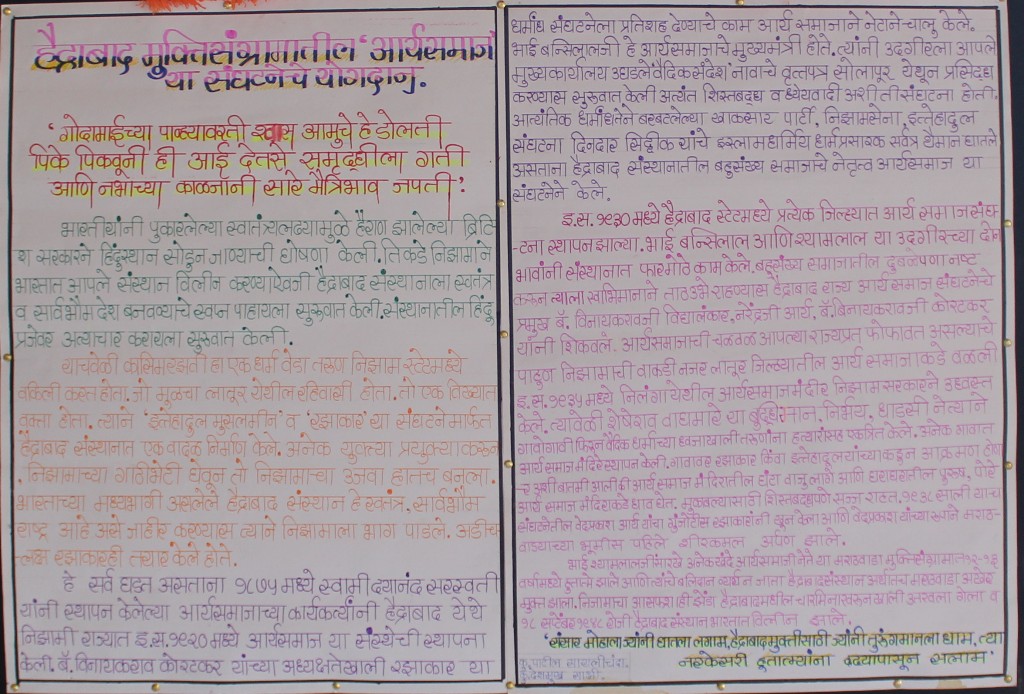 हैद्राबाद मुक्तिसंग्रामातील 'आर्यसमाज'
या संघटनेचे योगदान.
'गोदामाईच्या पाळ्यावरती श्वास आमुचे हे डोलती
पिके पिकवूनी ही आई देतसे समृद्धीला गती
आणि नभाच्या काळजांनी सारे मैत्रिभाव जपती'
भारतीयांनी पुकारलेल्या स्वातंत्र्यलढ्यामुळे हैराण झालेल्या ब्रिटि
श सरकारने हिंदुस्थान सोडून जाण्याची घोषणा केली. तिकडे निझामाने
भारतात आपले संस्थान विलीन करण्याऐवजी हैद्राबाद संस्थानाला स्वतंत्र
व सार्वभौम देश बनवण्याचे स्वप्न पाहायला सुरुवात केली. संस्थानातील हिंदु
प्रजेवर अत्याचार करायला सुरुवात केली.
याचवेळी कासिमरझवी हा एक धर्म वेडा तरुण निझाम स्टेटमध्ये
वकिली करत होता. जो मुळचा लातूर येथील रहिवासी होता. तो एक विख्यात
वक्ता होता. त्याने 'इत्तेहादुल मुसलमीन' व 'रझाकार' या संघटने मार्फत
हैद्राबाद संस्थानात एक वादळ निर्माण केले. अनेक युक्त्या प्रयुक्त्या करून
निझामाच्या गाठीभेटी घेवून तो निझामाचा उजवा हातच बनला.
भारताच्या मध्यभागी असलेले हैद्राबाद संस्थान हे स्वतंत्र, सार्वभौम
राष्ट्र आहे असे जाहीर करण्यास त्याने निझामाला भाग पाडले. अडीच
लक्ष रझाकारही तयार केले होते.
हे सर्व घडत असताना १८७५ मध्ये स्वामी दयानंद सरस्वती
यांनी स्थापन केलेल्या आर्यसमाजाच्या कार्यकर्त्यांनी हैद्राबाद येथे
निझामी राज्यात इ.स.१९२० मध्ये आर्यसमाज या संस्थेची स्थापना
केली. बॅ. विनायकराव कोरटकर यांच्या अध्यक्षतेखाली रझाकार या
धर्मांध संघटनेला प्रतिशह देण्याचे काम आर्य समाजाने नेटाने चालु केले.
भाई बन्सिलालजी हे आर्यसमाजाचे मुख्यमंत्री होते. त्यांनी उदगीरला आपले
मुख्य कार्यालय उघडले वैदिकसंदेश' नावाचे वृत्तपत्र सोलापूर येथून प्रसिद्ध
करण्यास सुरुवात केली अत्यंत शिस्तबद्ध व ध्येयवादी अशी ती संघटना होती.
आत्यंतिक धर्मांधतेने बरबटलेल्या खाकसार पार्टी, निझामसेना, इत्तेहादुल
संघटना दिनदार सिद्दिक यांचे इस्लामधर्मिय धर्मप्रसारक सर्वत्र थैमान घालत
असताना हैद्राबाद संस्थानातील बहुसंख्य समाजाचे नेतृत्व आर्यसमाज या
संघटनेने केले.
इ.स.१९३० मध्ये हैद्राबाद स्टेटमध्ये प्रत्येक जिल्ह्यात आर्य समाज संघ
-टना स्थापन झाल्या. भाई बन्सिलाल आणि श्यामलाल या उदगीरच्या दोन
भावांनी संस्थानात फार मोठे काम केले. बहुसंख्य समाजातील दुबळेपणा नष्ट
करून त्याला स्वाभिमानाने ताठ उभे राहण्यास हैद्राबाद राज्य आर्य समाज संघटनेचे
प्रमुख बॅ. विनायकरावजी विद्यालंकार, नरेंद्रजी आर्य, बॅ. विनायकरावजी कोरटकर
यांनी शिकवले. आर्यसमाजाची चळवळ आपल्या राज्यात फोफावत असल्याचे
पाहून निझामाची वाकडी नजर लातूर जिल्ह्यातील आर्य समाजाकडे वळली
इ.स.१९३५ मध्ये निलंगा येथील आर्यसमाज मंदीर निझाम सरकारने उध्वस्त
केले. त्यावेळी शेषेराव वाघमारे या बुद्धीमान, निर्भय, धाडसी नेत्याने
गावोगावी फिरून वैदिक धर्माच्या ध्वजाखाली तरुणांना हत्यारांसह एकत्रित केले. अनेक गावात
आर्य समाज मंदिरे स्थापन केली. गावावर रझाकार किंवा इत्तेहादुल यांच्याकडून आक्रमण होणा
-र अशी बातमी आली की आर्य समाज मंदिरातील घंटा वाजू लागे आणि घराघरातील पुरुष, पोरे
आर्य समाज मंदिराकडे धाव घेत, मुकाबल्यासाठी शिस्तबद्धपणे सज्ज राहत. १९३८ साली याच
संघटनेतील वेदप्रकाश आर्य यांचा गुंजोटीस रझाकारांनी खून केला आणि वेदप्रकाश यांच्या रुपाने मराठ-
वाड्याच्या भूमीस पहिले शीरकमल अर्पण झाले.
भाई श्यामलालजींसारखे अनेक खंदे आर्यसमाजी नेते या मराठवाडा मुक्तिसंग्रामात १२-१३
वर्षामध्ये हुतात्मे झाले आणि त्यांचे बलिदान व्यर्थ न जाता हैद्राबाद संस्थान अर्थातच मराठवाडा अखेर
मुक्त झाला. निजामाचा आसफशाही झेंडा हैद्राबादमधील चारमिनारवरून खाली उतरला गेला व
१७ सप्टेंबर १९४८ रोजी हैद्राबाद संस्थान भारतात विलीन झाले.
'संसार मोहाला ज्यांनी घातला लगाम, हैद्राबादमुक्तीसाठी ज्यांनी तुरुंग मानला धाम, त्या
नरकेसरी हुतात्म्यांना हृदयापासून सलाम'
कु. पाटील